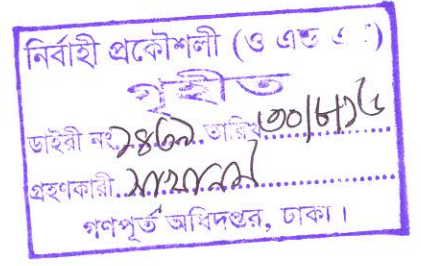 নির্বাহী প্রকৌশলী (ও এন্ড এ)
গৃহীত
ডাইরী নং.১৪৩৯..তারিখ ৩০/৮/১৫
গ্রহণকারী.
গণপূর্ত অধিদপ্তর, ঢাকা।